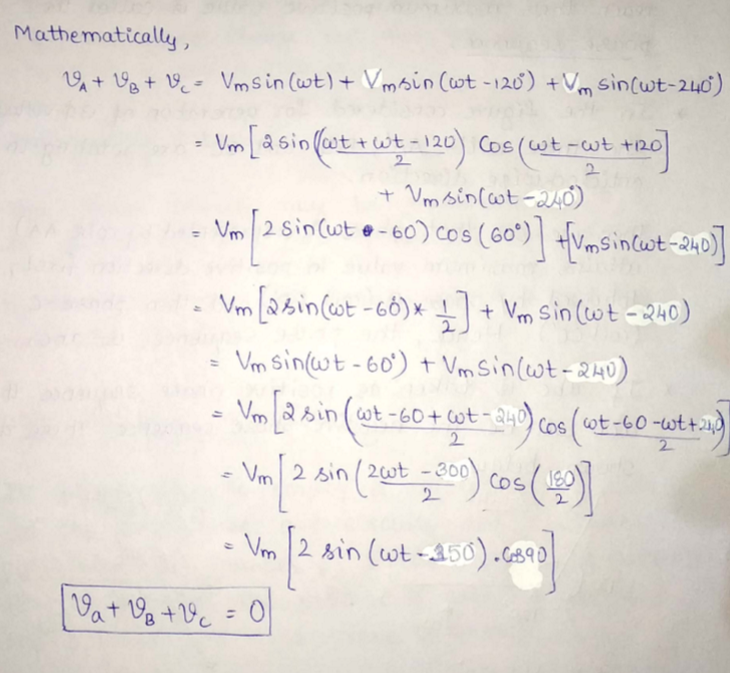 Mathematically,
V_A + V_B + V_C = Vm sin(ωt) + Vm sin(ωt -120°) + Vm sin(ωt-240°)
= Vm [2 sin((ωt + ωt -120)/2) Cos(ωt -ωt +120)/2]
+ Vm sin(ωt -240°)
= Vm [2 sin(ωt -60°) cos(60°)] + [Vm sin(ωt -240)]
= Vm [2 sin(ωt -60°) * 1/2] + Vm sin(ωt - 240)
= Vm sin(ωt -60°) + Vm sin(ωt - 240)
= Vm [2 sin((ωt -60 + ωt - 240)/2) cos((ωt -60 -ωt +240)/2)]
= Vm [2 sin((2ωt -300)/2) cos(180/2)]
= Vm [2 sin(ωt -150°) . Cos90]
Va + V_B + V_C = 0